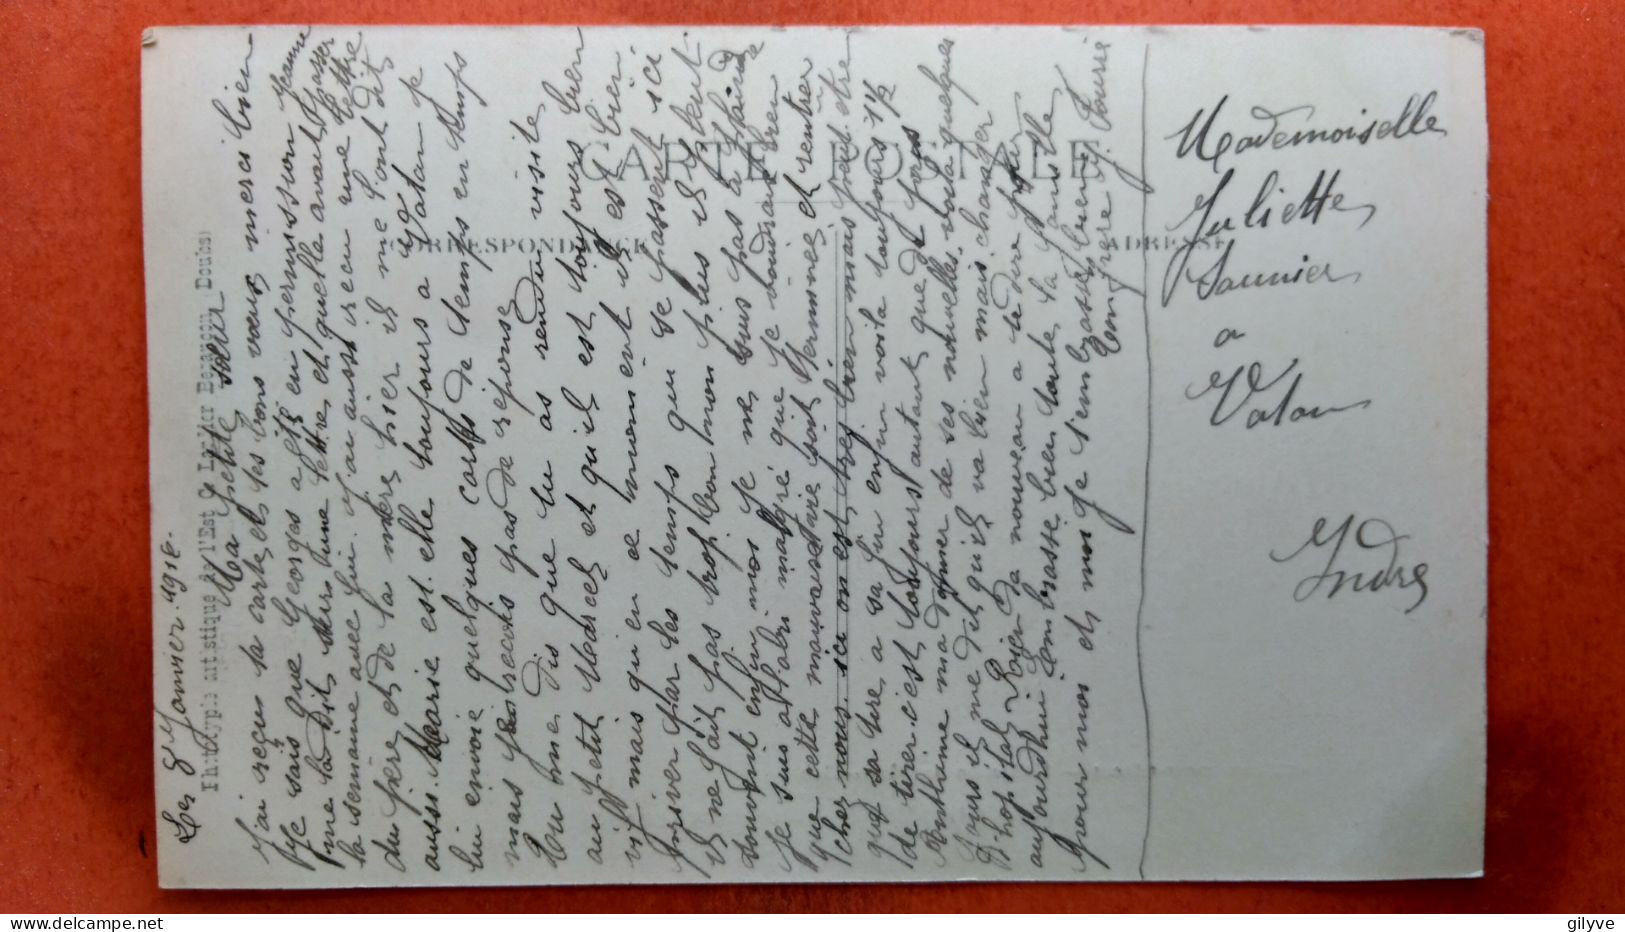 Les 8 Janvier 1918.
Phototypie artistique de l'Est C Lardier Besançon (Doubs)
Ma petite sœur
J'ai reçus ta carte et tes bons vœux merci bien
je sais que Georges a été en permission Jeanne
me la dit sur une lettre, et quelle avait passer
la semaine avec lui. J'ai aussi recu une lettre
du père et de la mère hier il me l'ont dit
aussi. Marie est elle toujours a Vatan je
lui envoie quelques cartes de temps en temps
mais je recois pas de réponse
tu me dis que tu as rendu visite
au petit Marcel et qu'il est toujours bien
vif mais qu'en ce moment il est bien
par les temps qui se passent ici
il ne fait pas trop bon mon plus il pleut
souvent enfin moi je ne suis pas a plaindre
je suis a l'abri malgré que je voudrais bien
que cette mauvaise vie soit terminée et rentrer
chez nous ici on est très bien mais peut etre
que sa tire a sa fin enfin voila toujours 41 1/2
de tirer c'est toujours autant que de fais
Anthime ma donner de ses nouvelles voila quelques
jours il me dit qu'il va bien mais changer
d'hopital Roger de nouveau a te dire pour
aujourdhui embrasse bien toute la famille
pour moi et moi je t'embrasse bien
ton frere
CARTE POSTALE
CORRESPONDANCE
ADRESSE
Mademoiselle
Juliette
Saunier
a
Vatan
Indre
gilyve